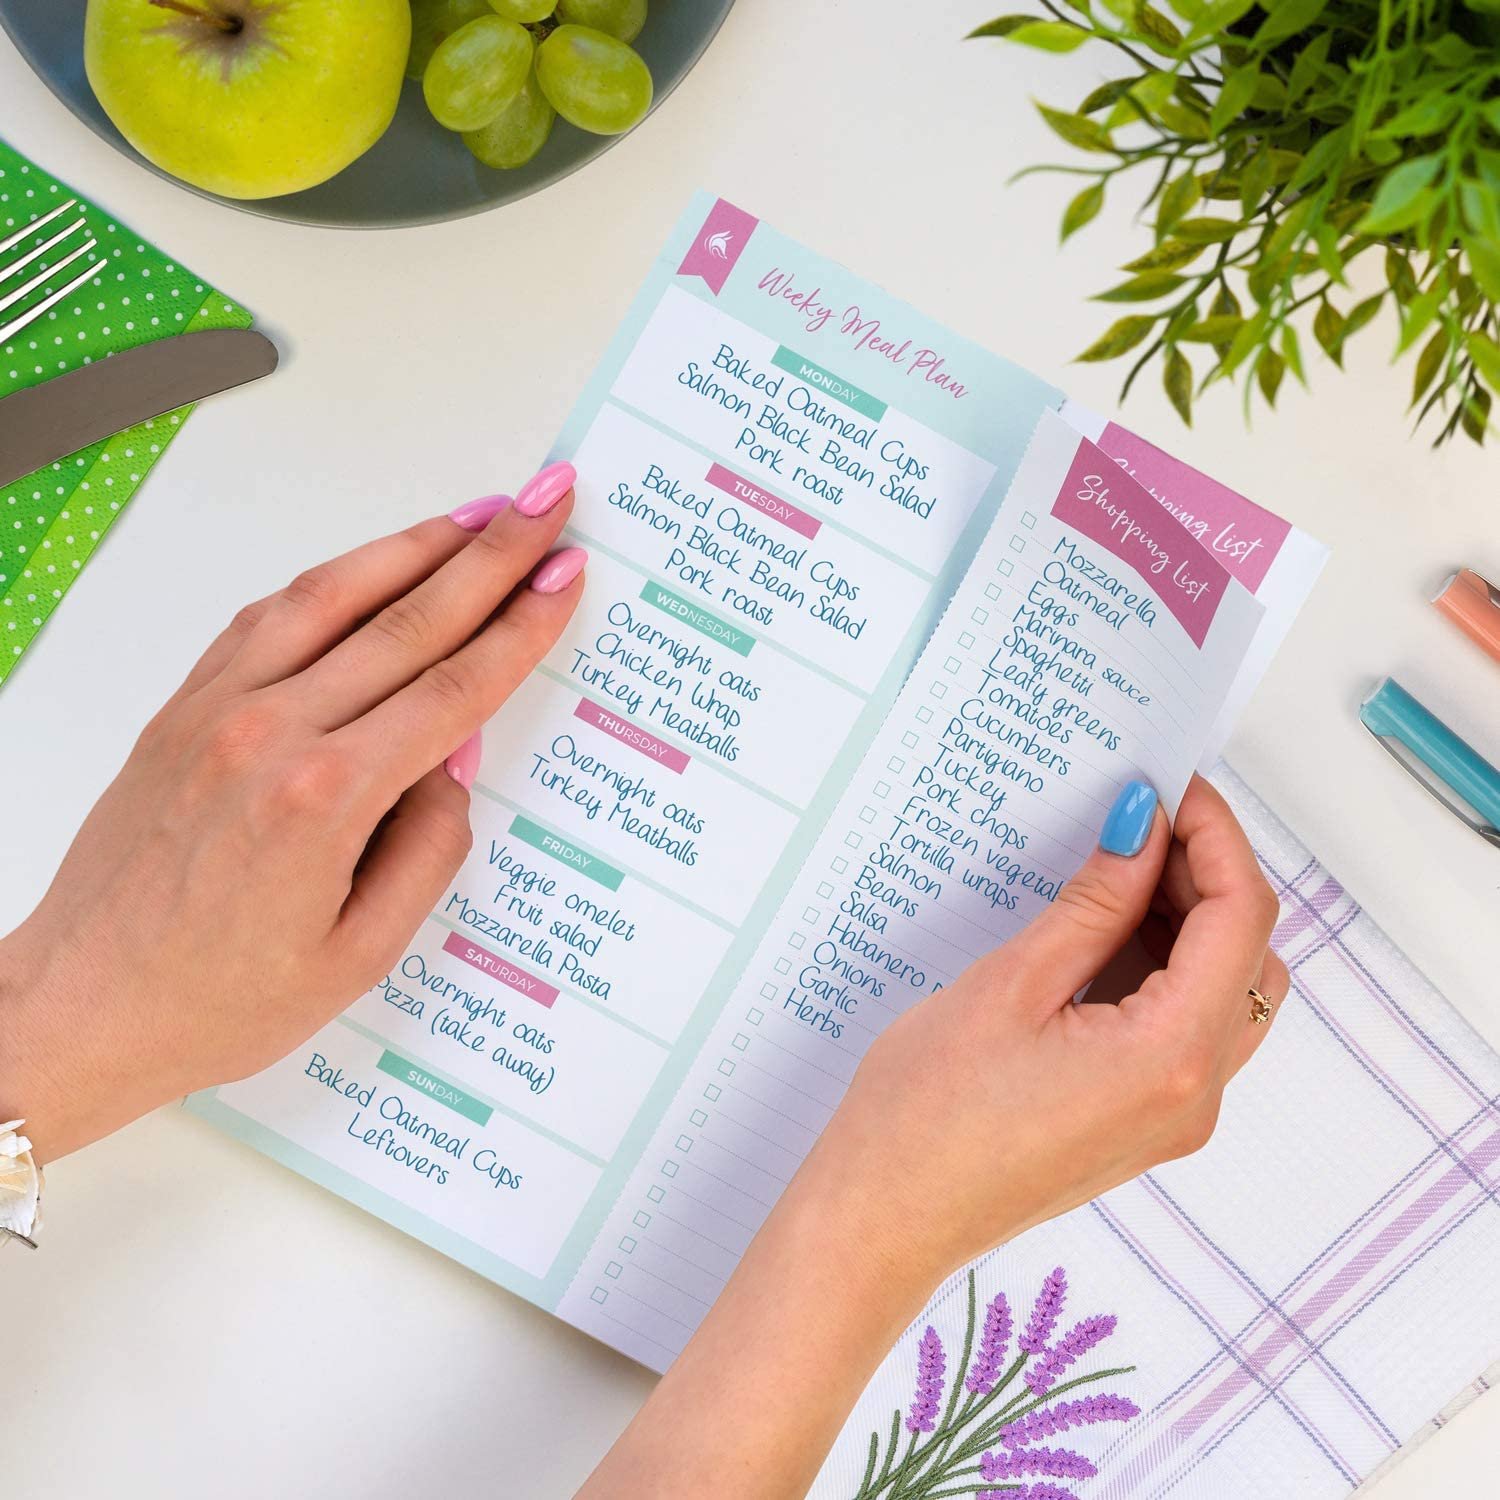 Weeky Meal Plan
MONDAY
Baked Oatmeal Cups
Salmon Black Bean Salad
Pork roast
TUESDAY
Baked Oatmeal Cups
Salmon Black Bean Salad
Pork roast
WEDNESDAY
Overnight oats
Chicken Wrap
Turkey Meatballs
THURSDAY
Overnight oats
Turkey Meatballs
FRIDAY
Veggie omelet
Fruit salad
Mozzarella Pasta
SATURDAY
Overnight oats
Pizza (take away)
SUNDAY
Baked Oatmeal Cups
Leftovers
Shopping List
Mozzarella
Oatmeal
Eggs
Marinara sauce
Spaghetti
Leafy greens
Tomatoes
Cucumbers
Partigiano
Tuckey
Pork chops
Frozen vegetab
Tortilla wraps
Salmon
Beans
Salsa
Habanero
Onions
Garlic
Herbs
Shopping List